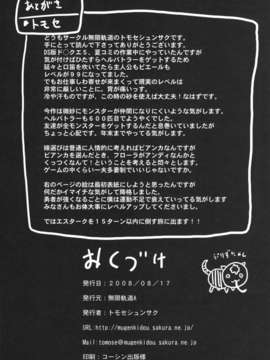 あとがき
トモセ
どうもサークル無限軌道のトモセシュンサクです。
手にとって読んで下さってありがとうございます。
DS版ド○クエ5、夏コミの作業中にやっていたんですが
気が付けばひたすらヘルバトラーをゲットするため
延々と口笛を吹いていたら主人公もピエールも
レベルが99になってました。
でもお仕事しわ寄せが出来まくって現実のレベルは
非常に厳しいことに。背が痛いっす。
冷や汗ものですが、この時を使えば大丈夫!なはずです。
今作は微妙にモンスターが仲間になりにくいような気がします。
ヘルバトラーも600匹目でようやくでした。
友達が全モンスターゲットするんだと息巻いていましたが
ちょっと心配です。年末までやってる気がします。
嫁選びは普通に人情的に考えればビアンカなんですが
ビアンカを選んだとき、フローラがアンディなんかと
くっつくなんて!ということを考えると悶々とします。
ゲームの中くらい一夫多妻制でいいじゃないですか。
右のページの絵は最初表紙にしようと思ったんですが
何だかイマイチな気がして挑戦してしまいました。
勇者が強くなるごとに僕は運動不足で衰えていってる気がします
みなさんもお体大事にレベルアップしてください。
ではエスタークを15ターン以内に倒す旅に出ます!!
おくづけ
発行日:2008/08/17
発行元:無限軌道A
発行者:トモセシュンサク
URL:http://mugenkidou.sakura.ne.jp/
Mail:tomose@mugenkidou.sakura.ne.jp
印刷:コーシン出版様